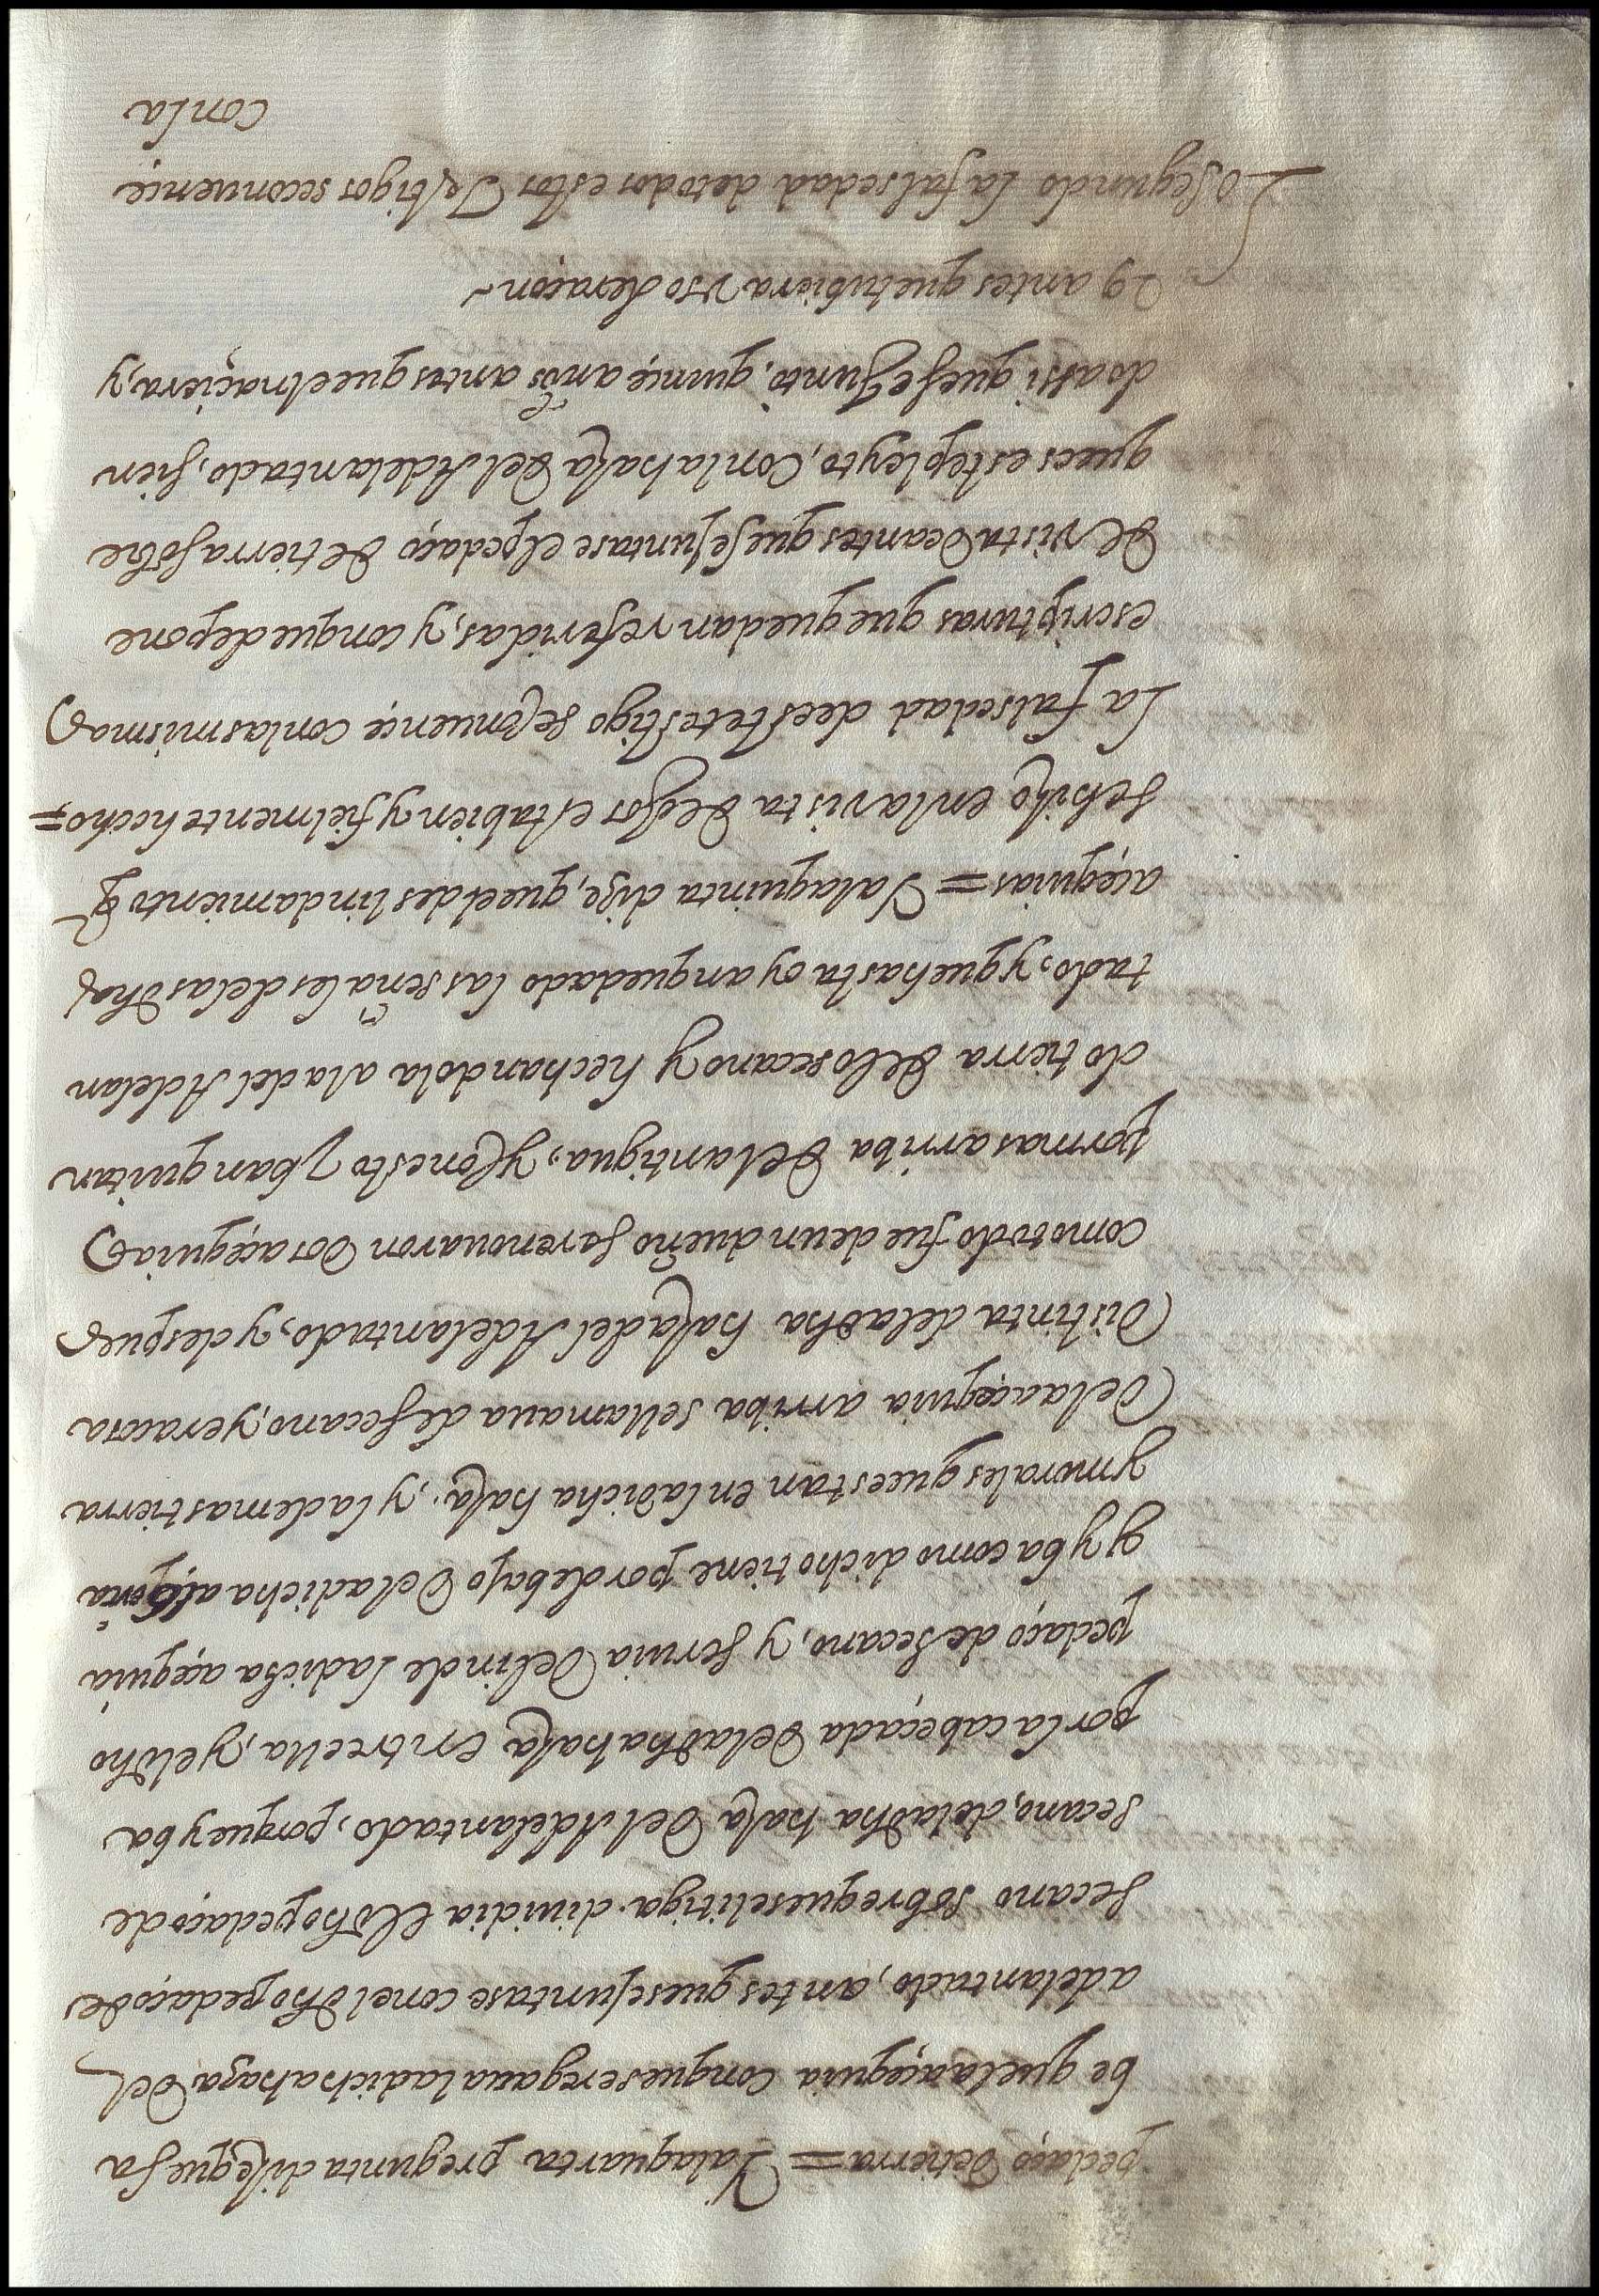 pedaço de tierra = Y a la quarta pregunta diçe que sa
be que la açequia con que se regaua la dicha haza del
adelantado, antes que se juntase con el dho pedaço de
secano sobre que se litiga. diuidia el dho pedaço de
secano, de la dha haça del Adelantado, porque yba
por la cabeçada de la dha haça entre ella, y el dho
pedaço de secano, y seruia de linde la dicha açequia
y yba como dicho tiene por debajo de la dicha
y morales que estan en la dicha haça, y la demas tierra
de la açequia arriba se llamaua de secano, y era cosa
distinta de la dha haça del Adelantado, y despues
como todo fue de un dueño se renouaron dos açequias
por mas arriba de la antigua, y con esto yban quitan
do tierra de lo secano y hechandola a la del Adelan
tado, y que hasta oy an quedado las señales de las dhas
açequias = Y a la quinta diçe, que el deslindamiento q
se hiço en la vista de ojos esta bien y fielmente hecho =
La falsedad de este testigo se conuençe con las mismas
escripturas que quedan referidas, y con que depone
de vista de antes que se juntase el pedaço de tierra sobre
que es este pleyto, con la haça del Adelantado, sien
do assi que se juntó, quinçe años antes que el naçiera, y
29 antes que tubiera vso de raçon ~
Lo segundo la falsedad de todos estos Testigos se conuençe
con la